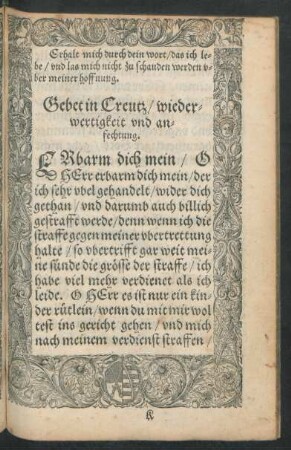 Erhalt mich durch dein wort / das ich le-
be / vnd las mich nicht zu schanden werden v-
ber meiner hoffnung.
Gebet in Creutz / wieder-
wertigkeit vnd an-
fechtung.
ERbarm dich mein / O
HErr erbarm dich mein / der
ich sehr vbel gehandelt / wider dich
gethan / vnd darumb auch billich
gestrafft werde / denn wenn ich die
straffe gegen meiner vbertrettung
halte / so vbertrifft gar weit mei-
ne sünde die grösse der straffe / ich
habe viel mehr verdienet als ich
leide. O HErr es ist nur ein kin-
der rütlein / wenn du mit mir wol
test ins gericht gehen / vnd mich
nach meinem verdienst straffen /
K